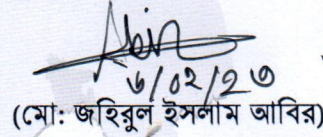 ৬/০২/২৩
(মো: জহিরুল ইসলাম আবির)